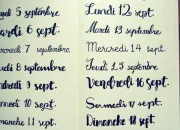 Lundi 5 septembre
Mardi 6 sept.
Mercredi 7 septembre
Jeudi 8 septembre
Vendredi 9 sept.
Samedi 10 sept.
Dimanche 11 sept.
Lundi 12 sept.
Mardi 13 septembre
Mercredi 14 sept.
Jeudi 15 septembre
Vendredi 16 sept.
Samedi 17 sept.
Dimanche 18 sept.